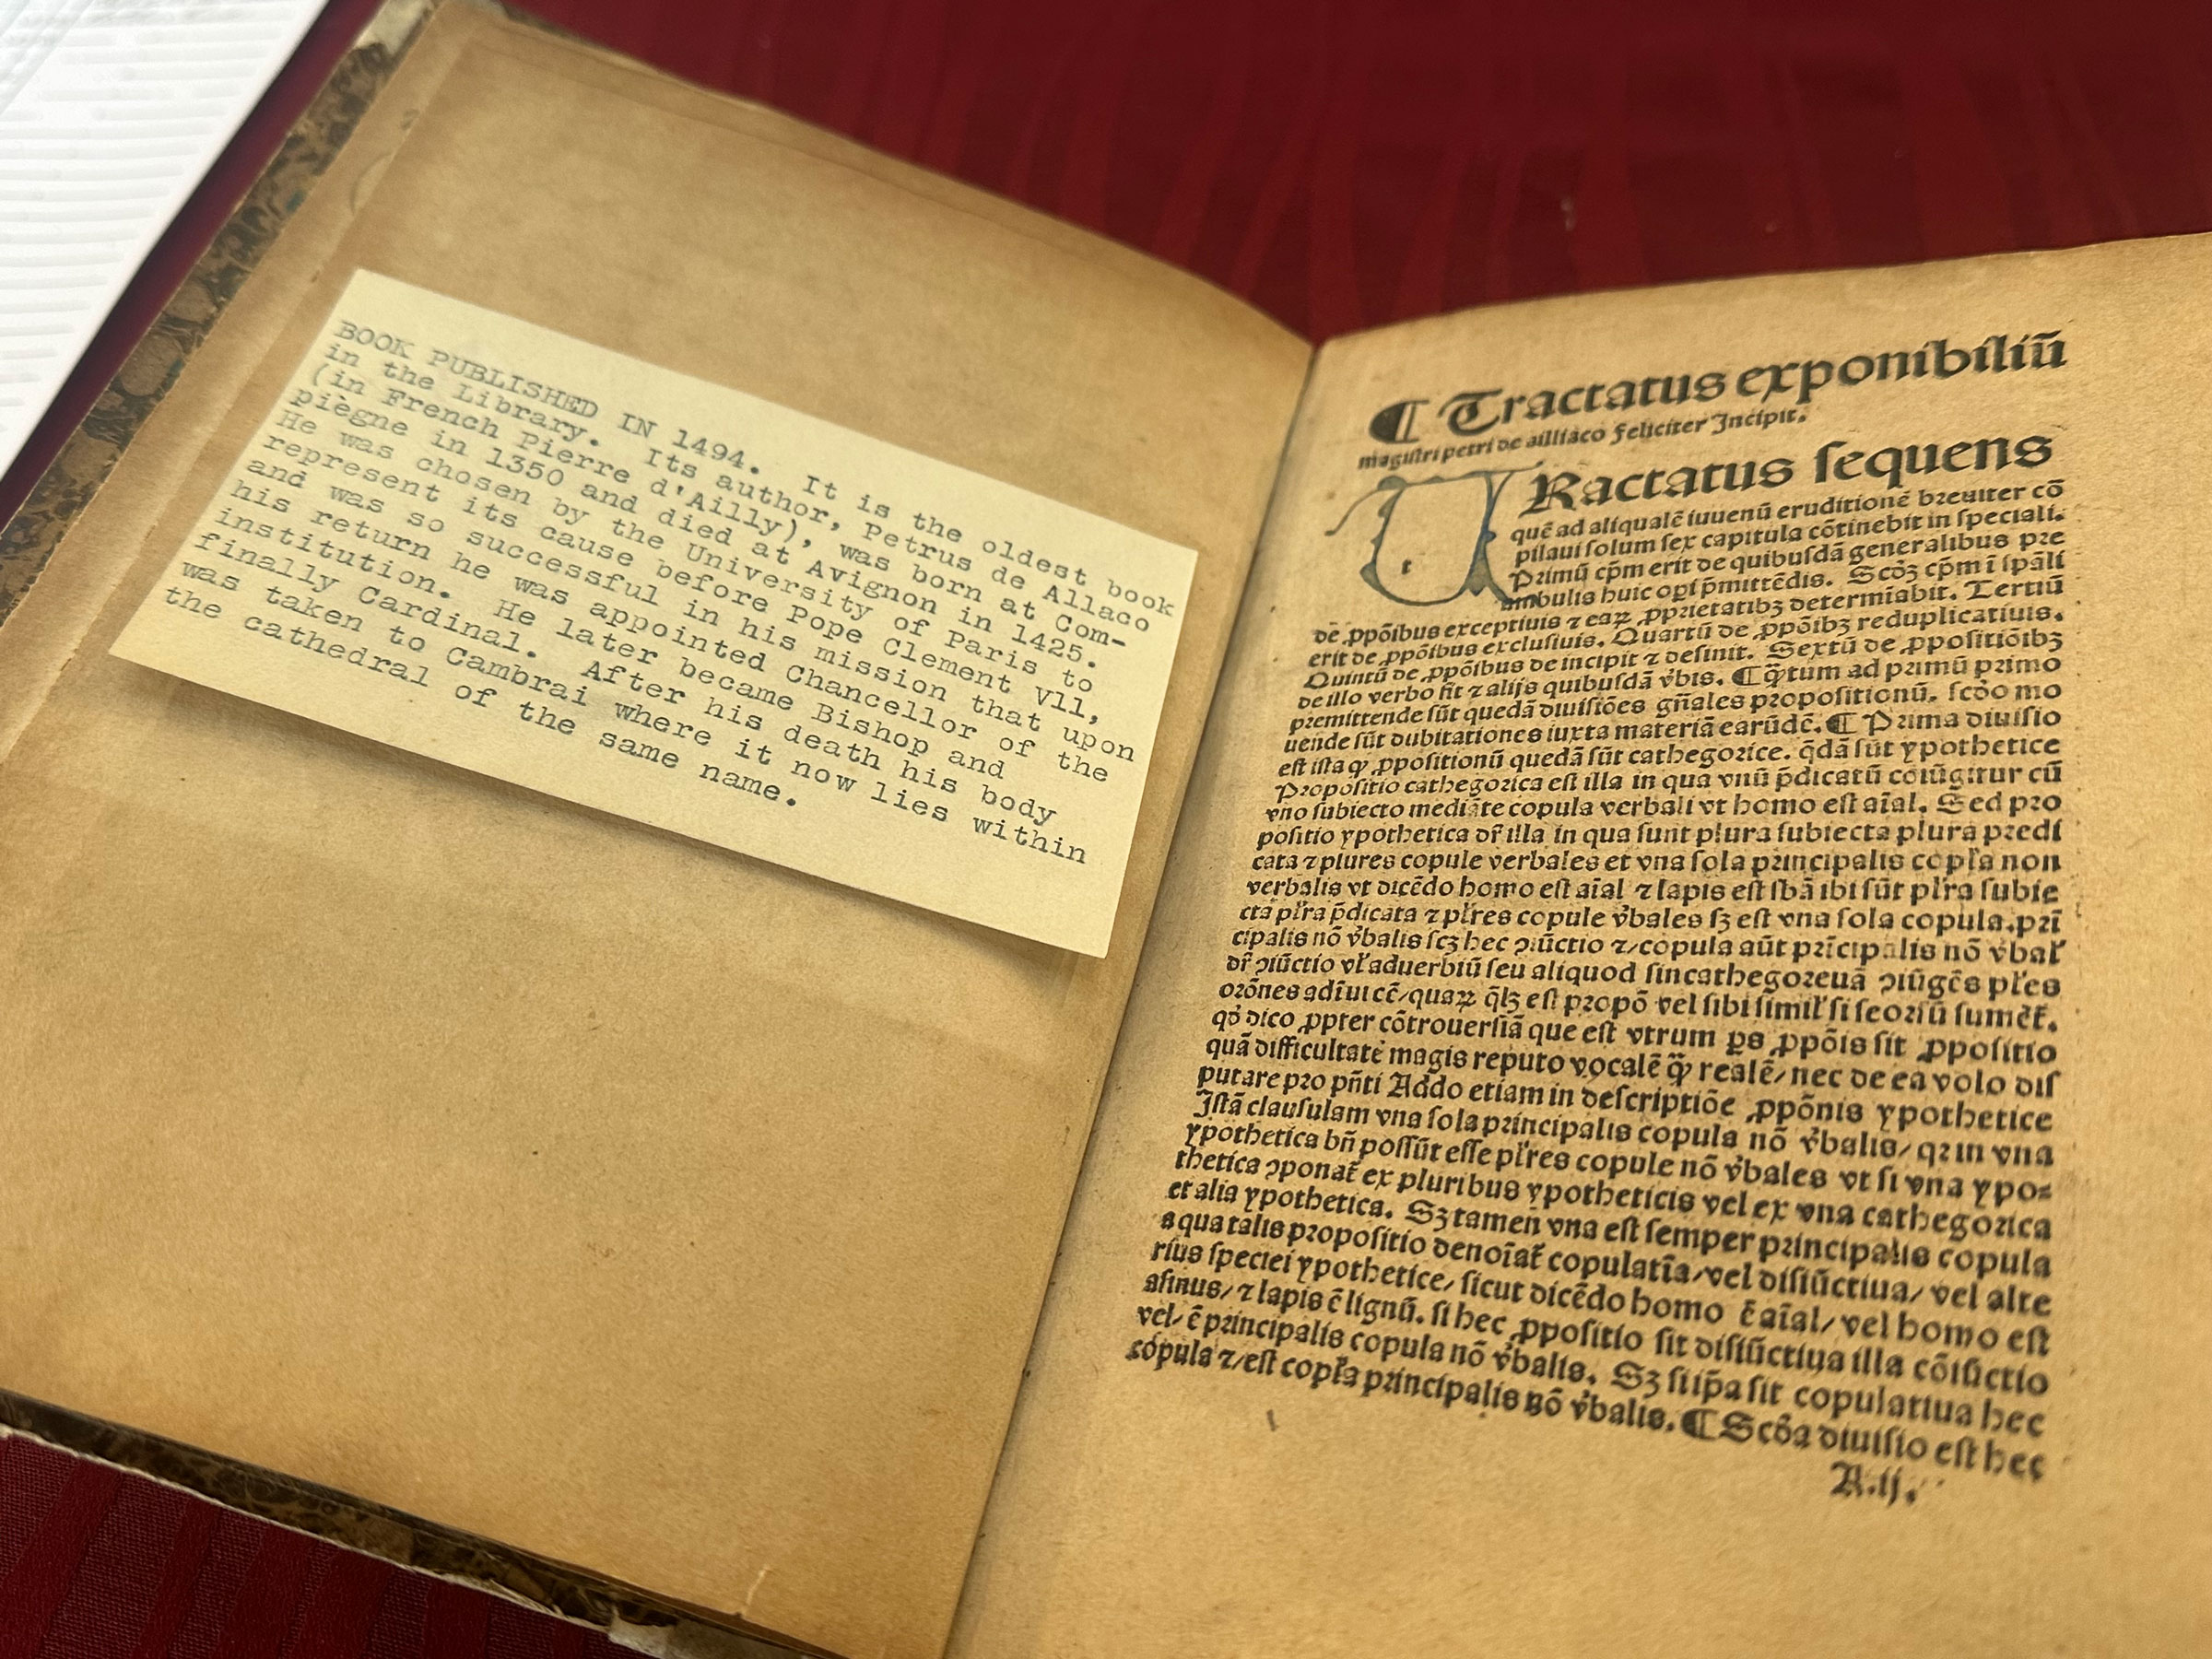 BOOK PUBLISHED IN 1494. It is the oldest book
in the Library. Its author, Petrus de Allaco
(in French Pierre d'Ailly), was born at Com-
piègne in 1350 and died at Avignon in 1425.
He was chosen by the University of Paris to
represent its cause before Pope Clement Vll,
and was so successful in his mission that upon
his return he was appointed Chancellor of the
institution. He later became Bishop and
finally Cardinal. After his death his body
was taken to Cambrai where it now lies within
the cathedral of the same name.
¶ Tractatus exponibiliū
magiſtri petri de ailliaco feliciter Incipit.
TRactatus ſequens
quē ad aliqualē iuuenū eruditionē breuiter cō
pilaui ſolum ſex capitula cōtinebit in ſpeciali.
Primū cp̄m erit de quibuſdā generalibus pre
ambulis huic opi p̄mittēdis. Scd̓ꝫ cp̄m ī ſpāli
de ꝓpōibus exceptiuis ⁊ eaꝝ ꝓprietatibꝫ determīabit. Tertiū
erit de ꝓpōibus excluſiuis. Quartū de ꝓpōibꝫ reduplicatiuis.
Quintū de ꝓpōibus de incipit ⁊ deſinit. Sextū de ꝓpoſitiōibꝫ
de illo verbo fit ⁊ alijs quibuſdā v̓bis. ¶ Q̄tum ad primū primo
premittende ſūt quedā diuiſiōes gn̄ales propoſitionū. ſcd̓o mo
uende ſūt dubitationes iuxta materiā earūdē. ¶ Prima diuiſio
eſt iſta ꝙ ꝓpoſitionū quedā ſūt cathegorice. q̄dā ſūt ypothetice
Propoſitio cathegorica eſt illa in qua vnū p̄dicatū coiūgitur cū
vno ſubiecto mediāte copula verbali vt homo eſt aīal. Sed pro
poſitio ypothetica dr̄ illa in qua ſunt plura ſubiecta plura predi
cata ⁊ plures copule verbales et vna ſola principalis copl̓a non
verbalis vt dicēdo homo eſt aīal ⁊ lapis eſt ſbā ibi ſūt pl̓ra ſubie
cta pl̓ra p̄dicata ⁊ pl̓res copule v̓bales ſꝫ eſt vna ſola copula prī
cipalis nō v̓balis ſcꝫ hec ꝯiūctio ⁊/copula aūt prīcipalis nō v̓bal̓
dr̄ ꝯiūctio vl̓ aduerbiū ſeu aliquod ſincathegoreuā ꝯiūgēs pl̓es
orōnes adīuicē/quaꝝ q̄lꝫ eſt propō vel ſibi ſimil̓ ſi ſeorſū
qd̓ dico ꝓpter cōtrouerſiā que eſt vtrum ꝑs ꝓpōis ſit ꝓpoſitio
quā difficultatē magis reputo vocalē q̄ꝫ realē/nec de ea volo diſ
putare pro pn̄ti Addo etiam in deſcriptiōe ꝓpōnis ypothetice
Iſtā clauſulam vna ſola principalis copula nō v̓balis/qꝛ in vna
ypothetica bn̄ poſſūt eſſe pl̓res copule nō v̓bales vt ſi vna ypo⸗
thetica ꝯponat̄ ex pluribus ypotheticis vel ex vna cathegorica
et alia ypothetica. Sꝫ tamen vna eſt ſemper principalis copula
a qua talis propoſitio denoīat̄ copulatīa/vel diſiūctiua/ vel alte
rius ſpeciei ypothetice/ ſicut dicēdo homo ē aīal/vel homo eſt
aſinus/⁊ lapis ē lignū. ſi hec ꝓpoſitio ſit diſiūctiua illa cōiūctio
vel/ ē principalis copula nō v̓balis. Sꝫ ſi ip̄a ſit copulatiua hec
copula ⁊/eſt copl̓a principalis nō v̓balis. ¶ Scd̓a diuiſio eſt hec
A.ij.